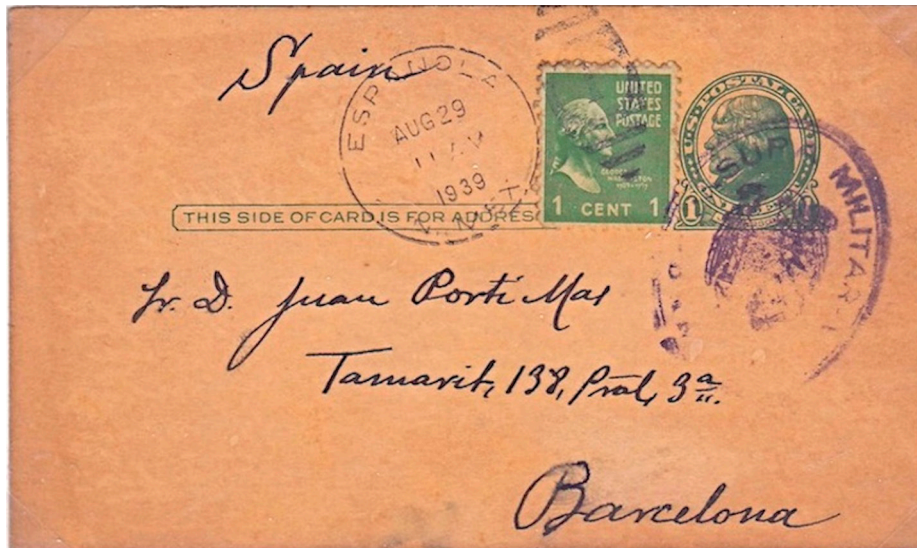 Spain
ESPANOLA
AUG 29
1939
N. MEX.
UNITED
STATES
POSTAGE
GEORGE
WASHINGTON
1 CENT 1
U.S. POSTAL CARD
1
MILITAR
THIS SIDE OF CARD IS FOR ADDRES
Sr. D. Juan Porti Mas
Tamarit, 138, Pral, 3ª.
Barcelona